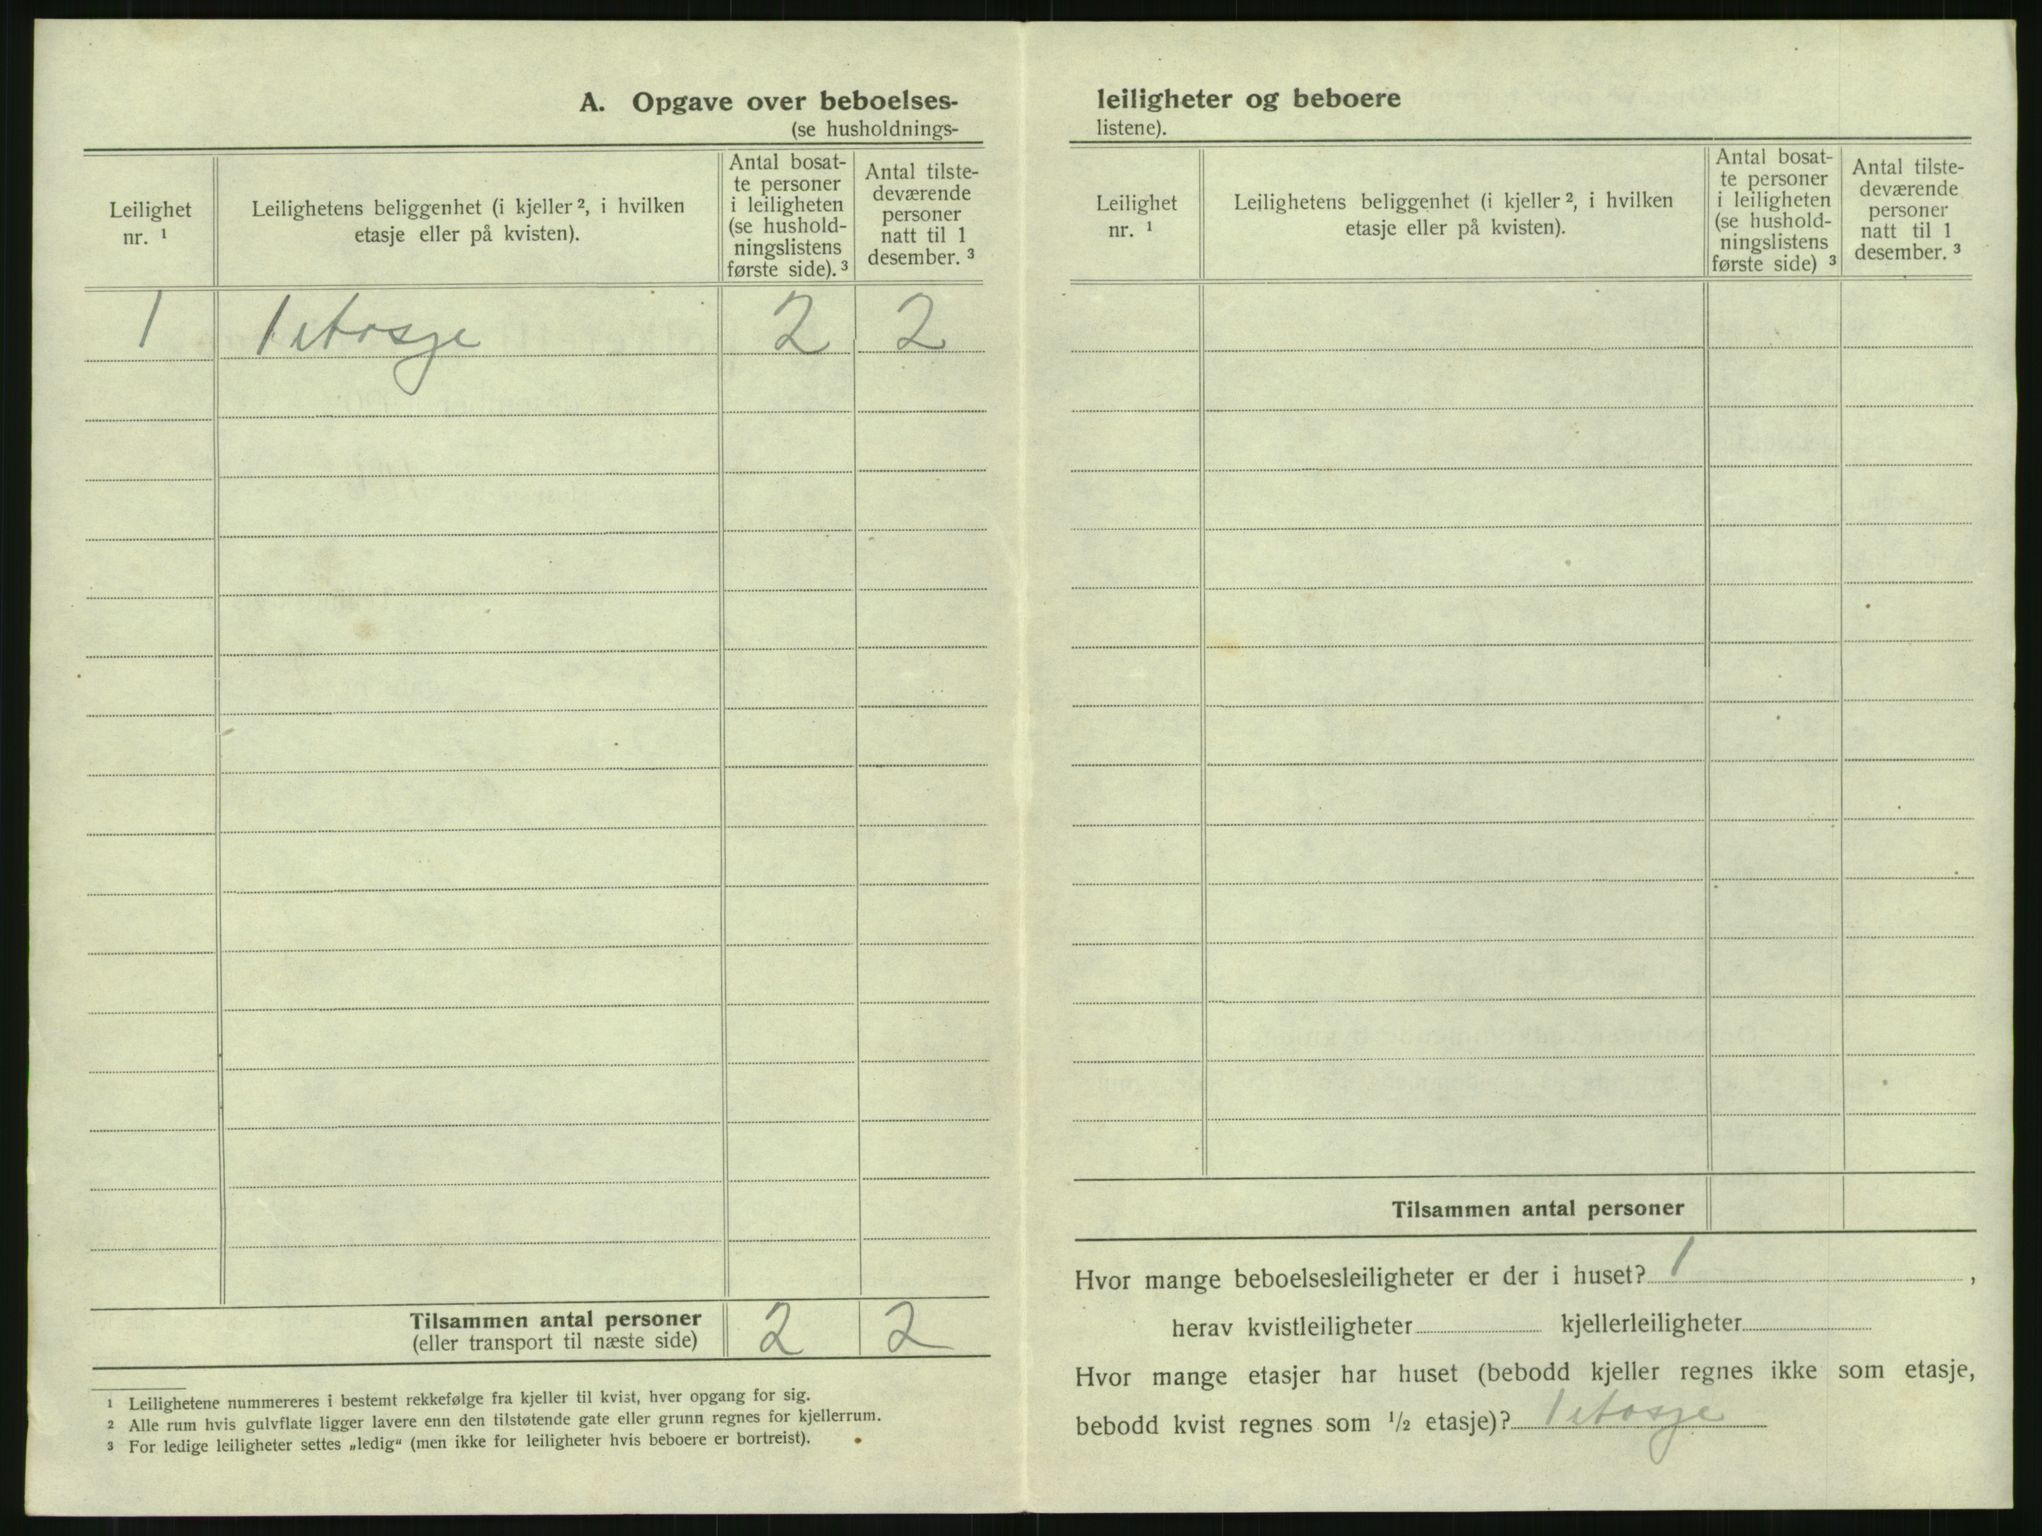 A. Opgave over beboelses-
(se husholdnings-
Leilighet
nr. ¹
Leilighetens beliggenhet (i kjeller ², i hvilken
etasje eller på kvisten).
Antal bosat-
te personer
i leiligheten
(se hushold-
ningslistens
første side). ³
Antal tilste-
deværende
personer
natt til 1
desember. ³
1 1 etasje 2 2
Tilsammen antal personer 2 2
(eller transport til næste side)
¹ Leilighetene nummereres i bestemt rekkefølge fra kjeller til kvist, hver opgang for sig.
² Alle rum hvis gulvflate ligger lavere enn den tilstøtende gate eller grunn regnes for kjellerrum.
³ For ledige leiligheter settes „ledig“ (men ikke for leiligheter hvis beboere er bortreist).
leiligheter og beboere
listene).
Leilighet
nr. ¹
Leilighetens beliggenhet (i kjeller ², i hvilken
etasje eller på kvisten).
Antal bosat-
te personer
i leiligheten
(se hushold-
ningslistens
første side) ³
Antal tilste-
deværende
personer
natt til 1
desember. ³
Tilsammen antal personer
Hvor mange beboelsesleiligheter er der i huset? 1 ,
herav kvistleiligheter kjellerleiligheter
Hvor mange etasjer har huset (bebodd kjeller regnes ikke som etasje,
bebodd kvist regnes som ½ etasje)? 1 etasje